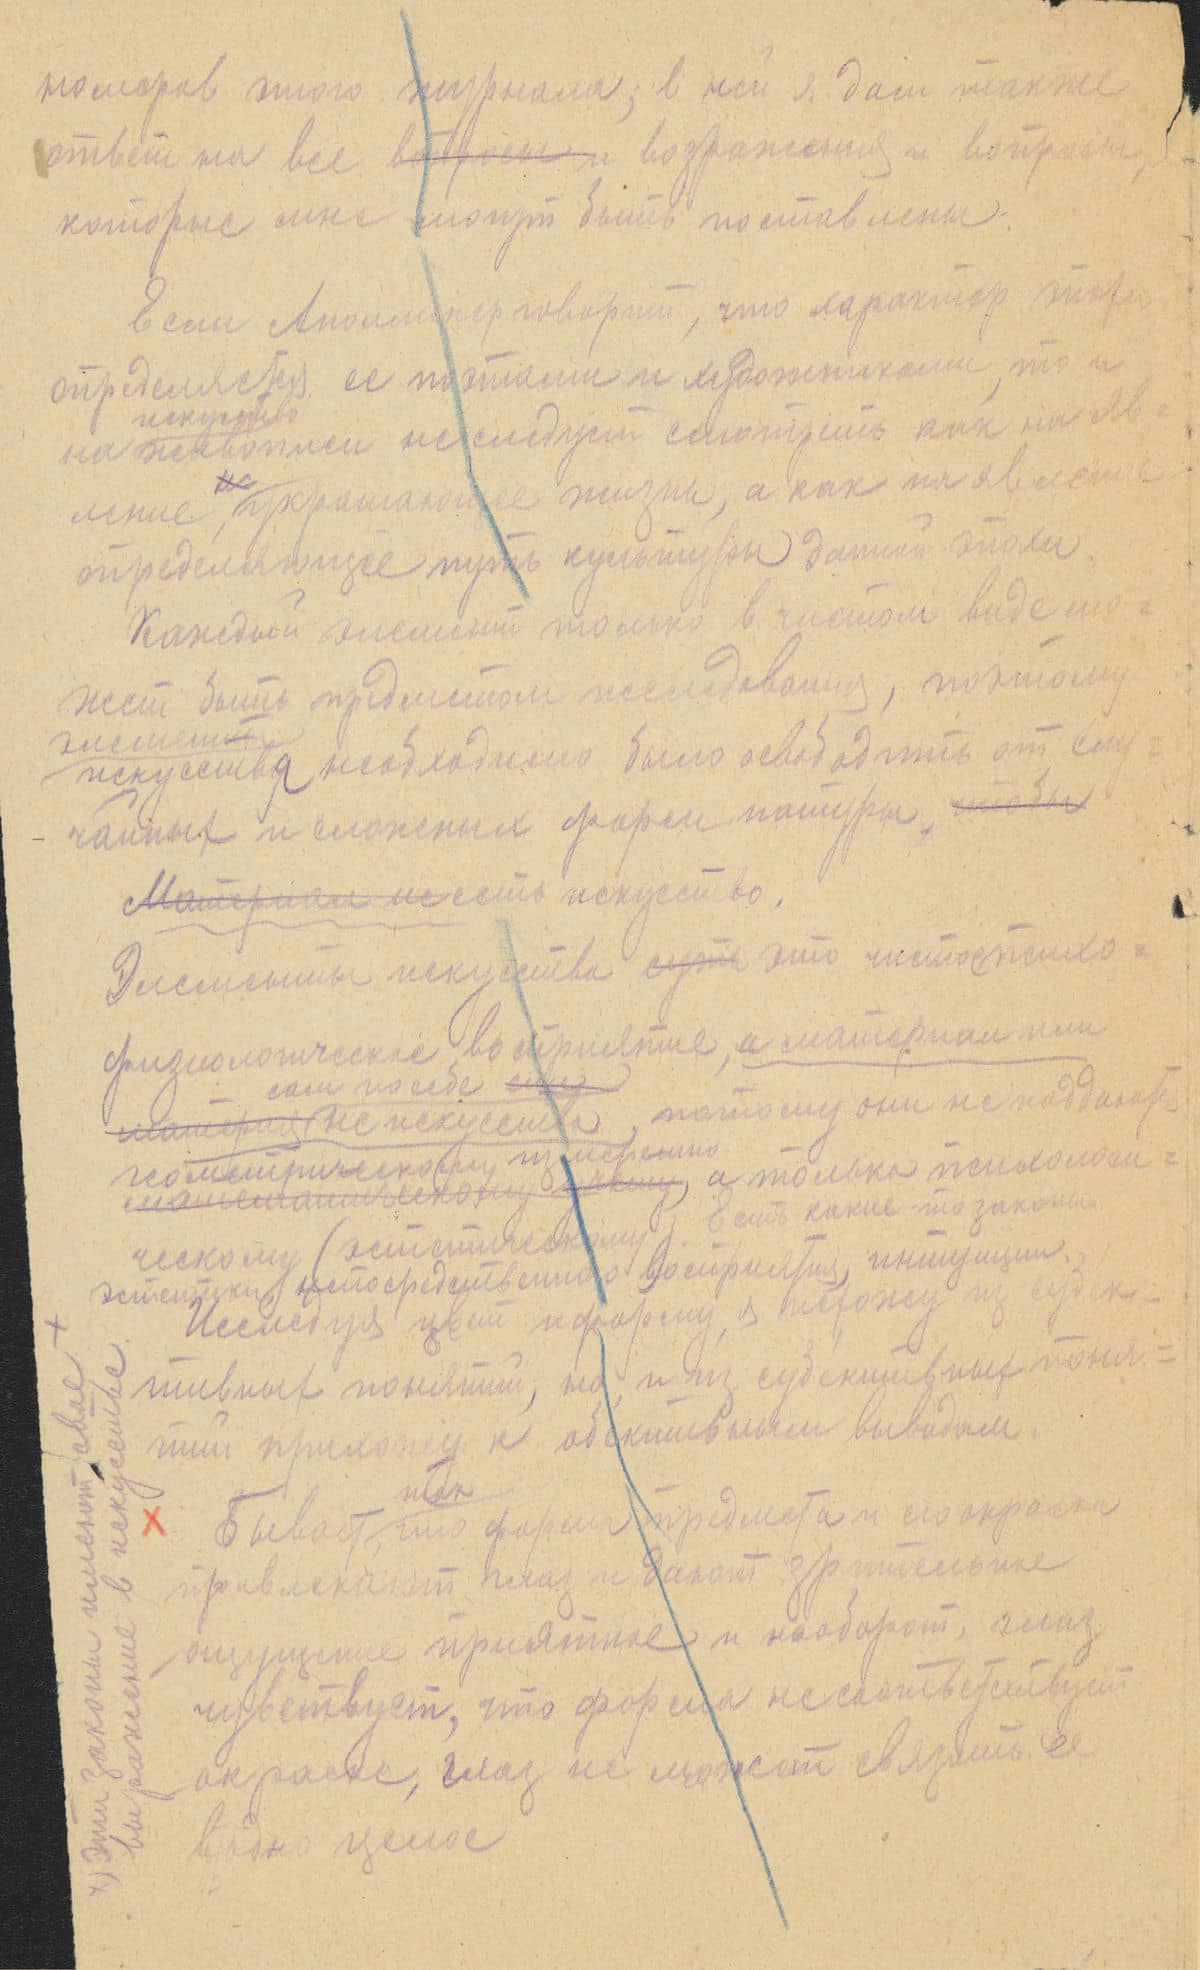 номеров этого журнала; в ней я дам также
ответ на все вопросы и возражения и вопросы,
которые мне могут быть поставлены.
Если Аполлинер говорит, что характер эпохи
определяется ее поэтами и художниками, то и
искусство
на живописи не следует смотреть как на яв=
ление, не украшающее жизнь, а как на явление
определяющее путь культуры данной эпохи.
Каждый элемент только в чистом виде мо=
жет быть предметом исследования, поэтому
элементы
искусства необходимо было освободить от слу=
чайных и сложных форм натуры, чтобы
Материал не есть искусство.
Элементы искусства суть это чисто психо=
физиологическое восприятие, а материал или
сам по себе еще
материя не искусство, потому они не поддаются
геометрическому измерению
математическому учету, а только психологи=
ческому (эстетическому). Есть какие-то законы
эстетики, непосредственного восприятия, интуиции. +
Исследуя цвет и форму, я исхожу из субек=
тивных понятий, но, и из субективных поня=
тий прихожу к обективным выводам.
так
Бывает, что форма предмета и его окраска
привлекают глаз и дают зрительное
ощущение приятное и наоборот, глаз
чувствует, что форма не соответствует
окраске, глаз не может связать ее
в одно целое
х) Эти законы имеют свое
выражение в искусстве.